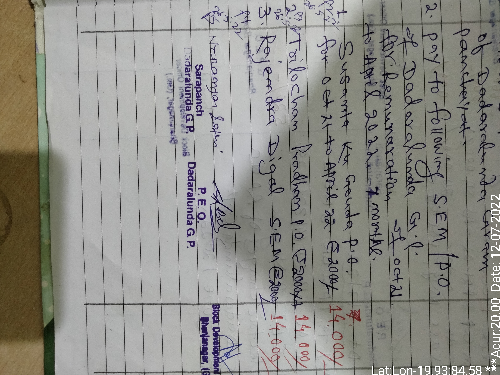 of Dadaralunda Gram
panchayat.
2. pay to following SEM/P.O.
of Dadaralunda G.P.
for Remuneration of oct 21
to April 2022 7 months.
1. Susanta Kr Gouda P.O.
for oct 21 to April 22 @ 2000/- 14.000/-
2. Trilochan Pradhan P.O. @ 2000x7 14.000/-
3. Rajendra Digal SEM @ 2000/- 14.000/-
Sarapanch
Dadaralunda G.P.
P. E. O.
Dadaralunda G.P.
Block Development
Bhanjanagar, (G
Lat Lon-19.93:84.58 ***Acur:20.00 Date: 12-07-2022